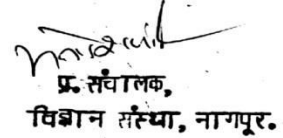 प्र. संचालक,
विज्ञान संस्था, नागपूर.